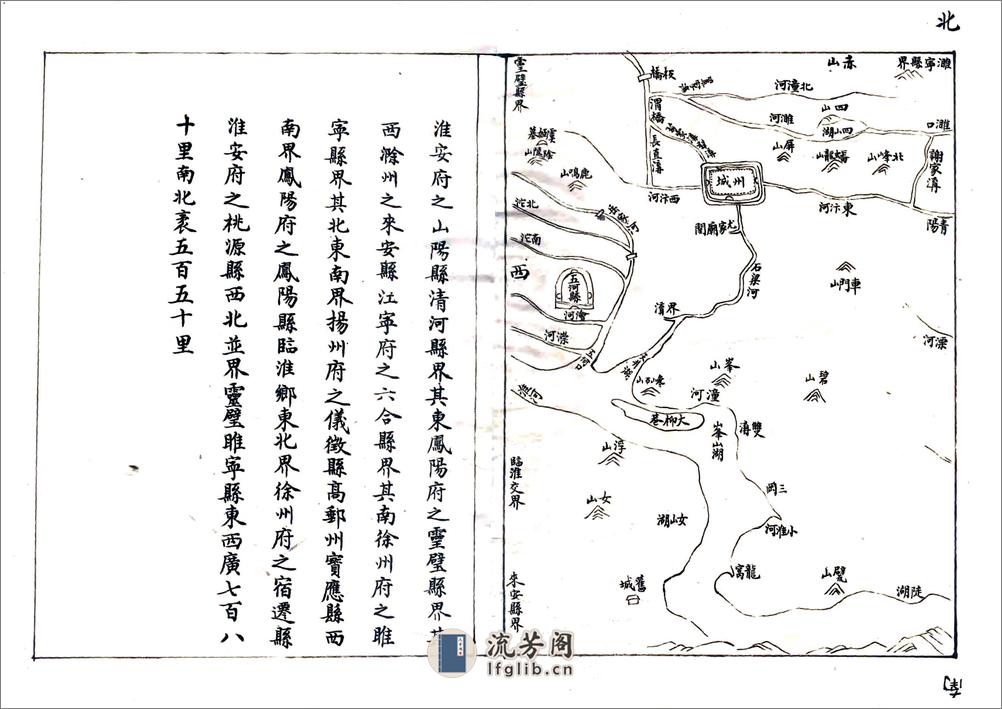 北
睢寧縣界
赤山
靈璧縣界
板橋
北潼河
四山
四山湖
睢河
睢口
渭橋
長直溝
屏山
蟠龍山
北峰山
謝家溝
陰陵山
鹿鳴山
州城
西汴河
東汴河
青陽
北沱
南沱
尤家廟閘
石梁河
車門山
西
五河縣
澮河
界溝
漴河
潼河
峯山
碧山
大柳巷
峯山湖
雙溝
淮河
浮山
三岡
女山
女山湖
小淮河
臨淮交界
龍窩
璧山
陡湖
舊城
來安縣界
南
淮安府之山陽縣清河縣界其東鳳陽府之靈璧縣界其
西滁州之來安縣江寧府之六合縣界其南徐州府之睢
寧縣界其北東南界揚州府之儀徵縣高郵州寶應縣西
南界鳳陽府之鳳陽縣臨淮鄉東北界徐州府之宿遷縣
淮安府之桃源縣西北並界靈璧睢寧縣東西廣七百八
十里南北袤五百五十里
流芳阁
lfglib.cn